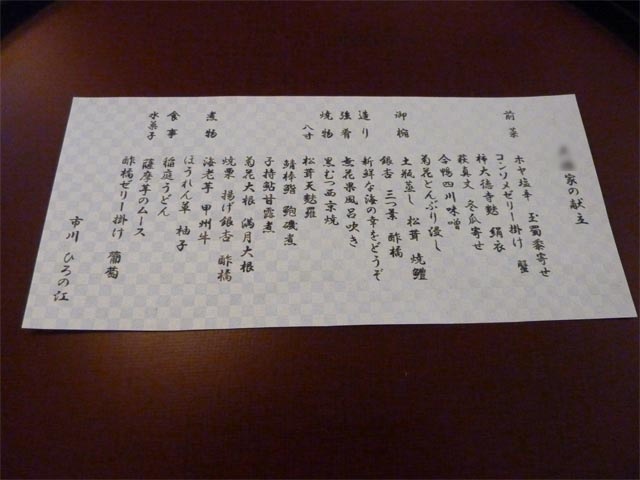 家の献立
前菜
ホヤ塩辛 玉蜀黍寄せ
コンソメゼリー掛け 蟹
柿大徳寺麩 絹衣
萩真丈 冬瓜寄せ
合鴨四川味噌
菊花とんぶり浸し
御椀
土瓶蒸し 松茸 焼鱧
銀杏 三つ葉 酢橘
造り
新鮮な海の幸をどうぞ
強肴
無花果風呂吹き
焼物
黒むつ西京焼
八寸
松茸天麩羅
鯖棒鮨 鮑磯煮
子持鮎甘露煮
菊花大根 満月大根
焼栗 揚げ銀杏 酢橘
煮物
海老芋 甲州牛
ほうれん草 柚子
食事
稲庭うどん
水菓子
薩摩芋のムース
酢橘ゼリー掛け 葡萄
市川 ひろの江